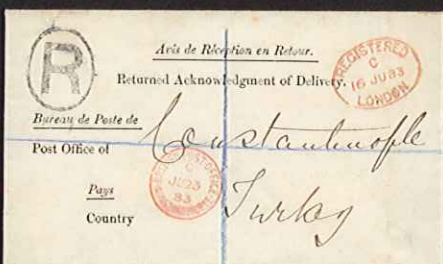 Avis de Réception en Retour.
R
Returned Acknowledgment of Delivery.
REGISTERED
C
16 JU 83
LONDON
Bureau de Poste de
Post Office of
Constantinople
C
JU 23
83
Pays
Country
Turkey